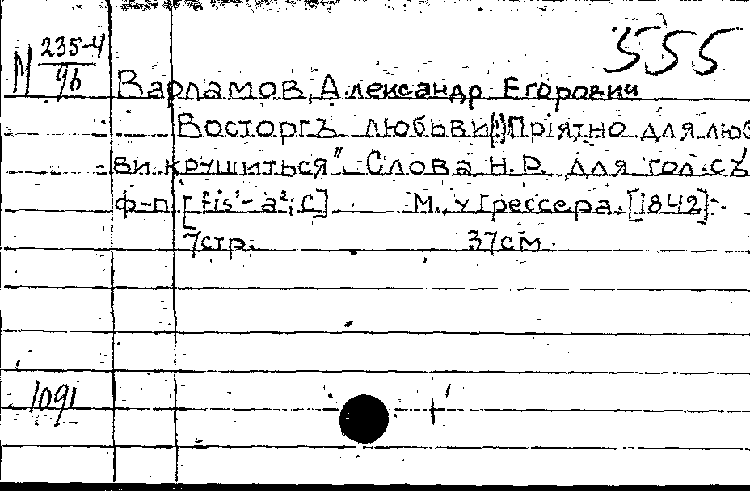 555
М 235-4
96
Варламов, Александр Егорович
Восторгъ любьви [!] Прiятно для люб
ви крушиться". Слова Н.Р. для гол. съ
ф-п [fis¹-a²; C] М., у Грессера. [1842].
7стр. 37см.
1091